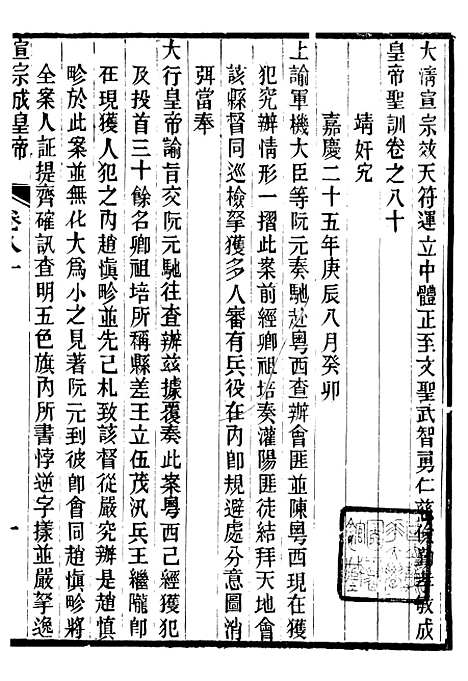 大清宣宗效天符運立中體正至文聖武智勇仁慈儉勤孝敏成
皇帝聖訓卷之八十
靖奸宄
嘉慶二十五年庚辰八月癸卯
上諭軍機大臣等阮元奏馳赴粵西查辦會匪並陳粵西現在獲
犯究辦情形一摺此案前經卿祖培奏灌陽匪徒結拜天地會
該縣督同巡檢拏獲多人審有兵役在內卽規避處分意圖消
弭當奉
大行皇帝諭旨交阮元馳往查辦茲據覆奏此案粵西已經獲犯
及投首三十餘名卿祖培所稱縣差王立伍茂汛兵王繼隴卽
在現獲人犯之內趙愼畛並先已札致該督從嚴究辦是趙愼
畛於此案並無化大爲小之見著阮元到彼卽會同趙愼畛將
全案人証提齊確訊查明五色旗內所書悖逆字樣並嚴拏逸
宣宗成皇帝
卷八
一